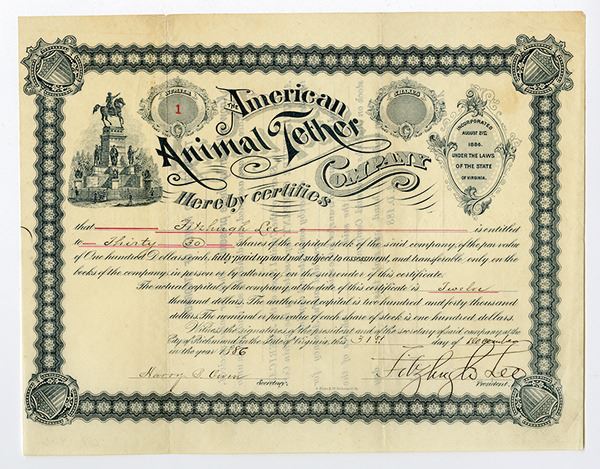 NUMBER
1
THE American
SHARES
Animal Tether
COMPANY
Hereby certifies
INCORPORATED
AUGUST 21st,
1886.
UNDER THE LAWS
OF THE STATE
OF VIRGINIA.
that Fitzhugh Lee is entitled
to Thirty (30) shares of the capital stock of the said company, of the par value
of One hundred Dollars each, fully paid up and not subject to assessment, and transferable only on the
books of the company in person or by attorney, on the surrender of this certificate.
The actual capital of the company at the date of this certificate is Twelve
thousand dollars. The authorised capital is two hundred and forty thousand
dollars. The nominal or par value of each share of stock is one hundred dollars.
Witness the signatures of the president and of the secretary of said company at the
City of Richmond in the State of Virginia, this 31st day of December
in the year 1886
Secretary.
Fitzhugh Lee
President.